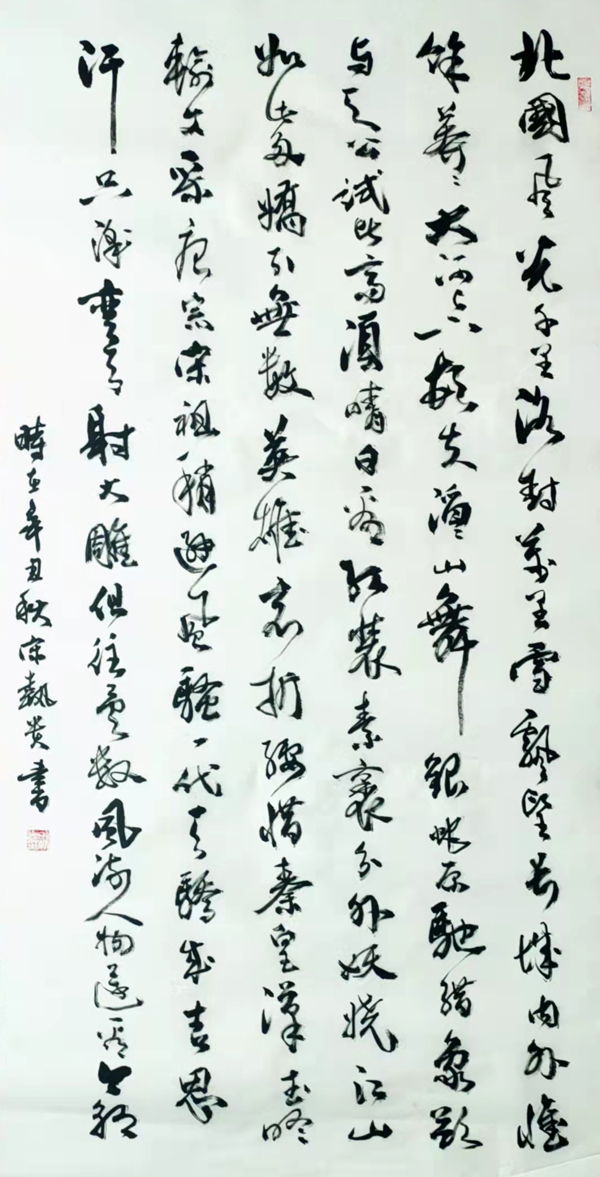 北國風光千里冰封萬里雪飄望長城内外惟
餘莽〻大河上下頓失滔〻山舞銀蛇原馳蜡象欲
与天公試比高須晴日看红裝素裹分外妖娆江山
如此多嬌引無數英雄竞折腰惜秦皇漢武略
輸文采唐宗宋祖稍遜風騷一代天驕成吉思
汗只識彎弓射大雕俱往矣數風流人物還看今朝
時在辛丑秋宋貴書